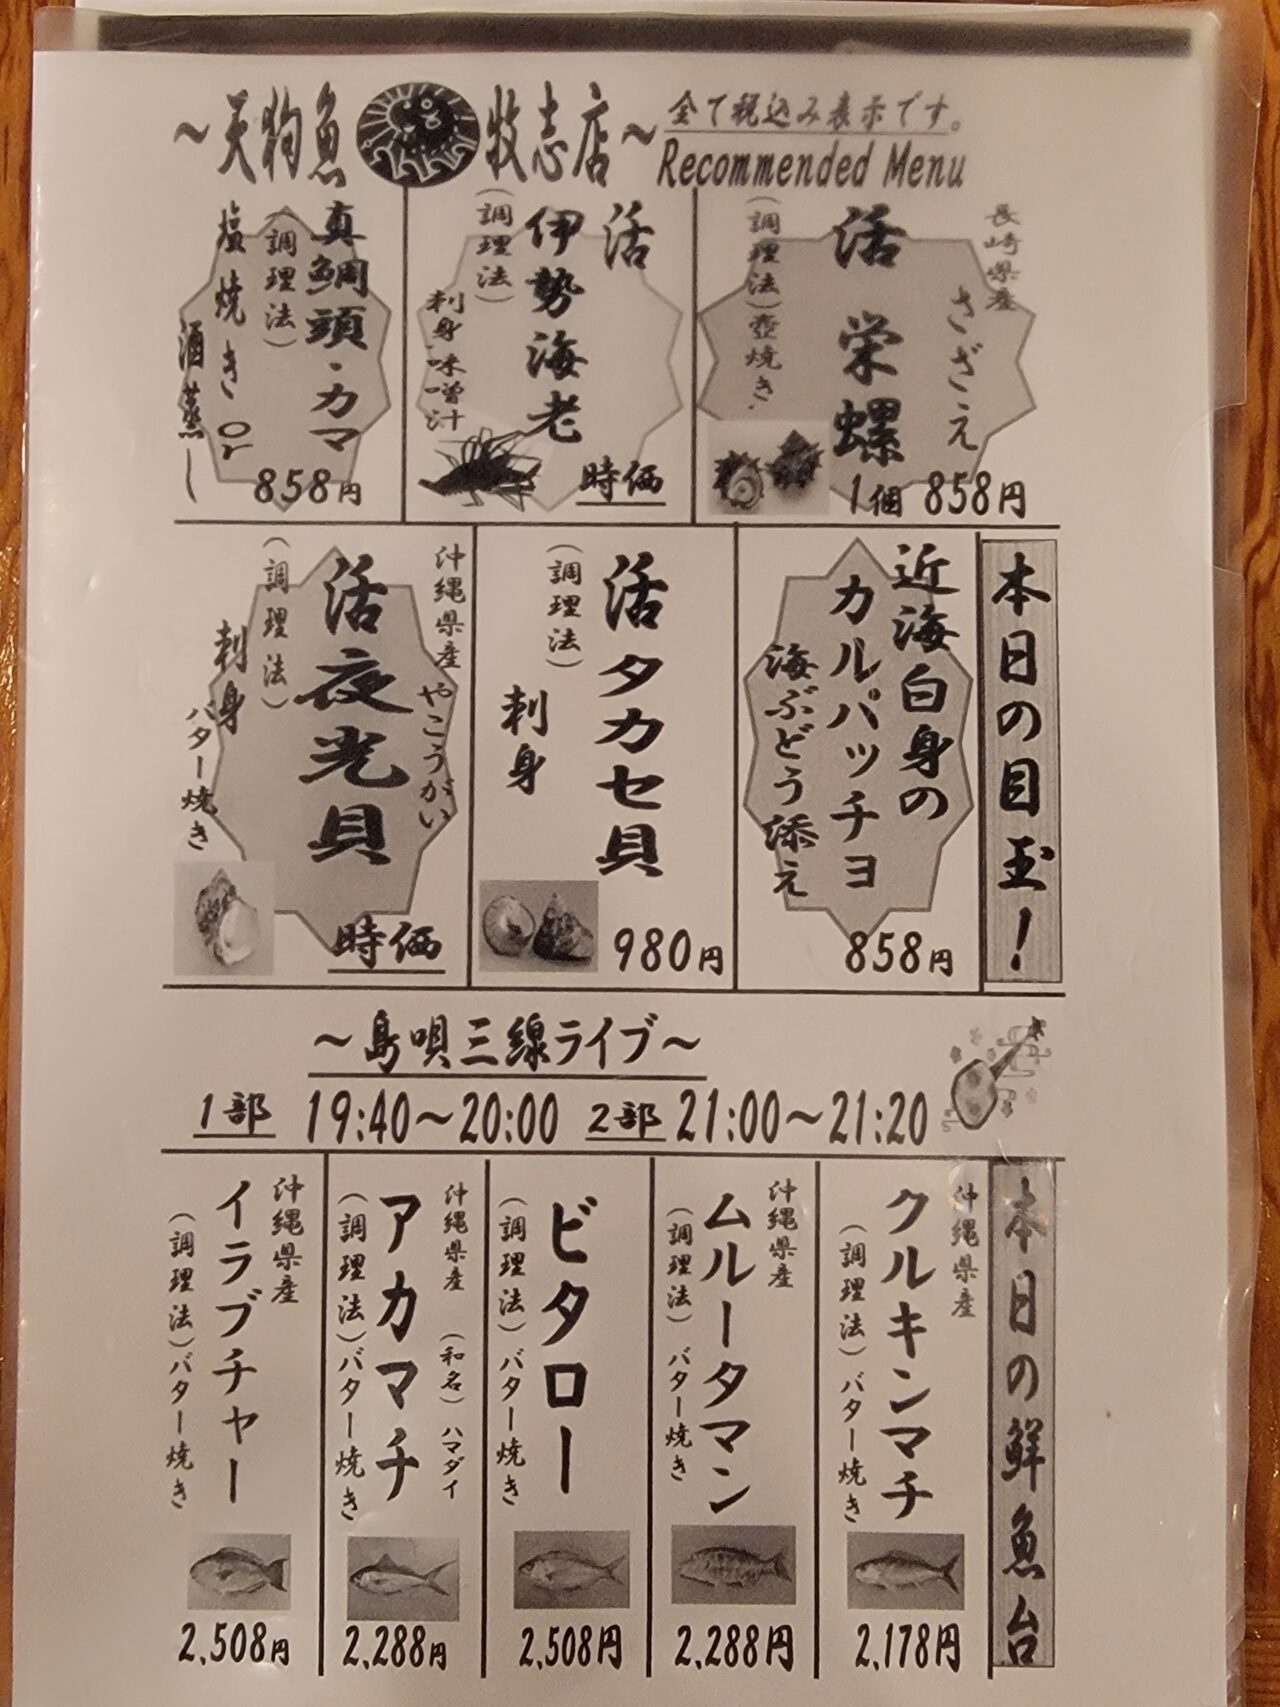 ～天狗魚 牧志店～
全て税込み表示です。
Recommended Menu
長崎県産
さざえ
活 栄螺
(調理法)壺焼き
1個 858円
活
伊勢海老
(調理法)
刺身・味噌汁
時価
真鯛頭・カマ
(調理法)
塩焼き or
酒蒸し
858円
本日の目玉！
近海白身の
カルパッチョ
海ぶどう添え
858円
活タカセ貝
(調理法)
刺身
980円
沖縄県産
やこうがい
活夜光貝
(調理法)
刺身
バター焼き
時価
～島唄三線ライブ～
1部 19:40～20:00 2部 21:00～21:20
本日の鮮魚台
沖縄県産
クルキンマチ
(調理法)バター焼き
2,178円
沖縄県産
ムルータマン
(調理法)バター焼き
2,288円
ビタロー
(調理法)バター焼き
2,508円
沖縄県産 (和名)ハマダイ
アカマチ
(調理法)バター焼き
2,288円
沖縄県産
イラブチャー
(調理法)バター焼き
2,508円